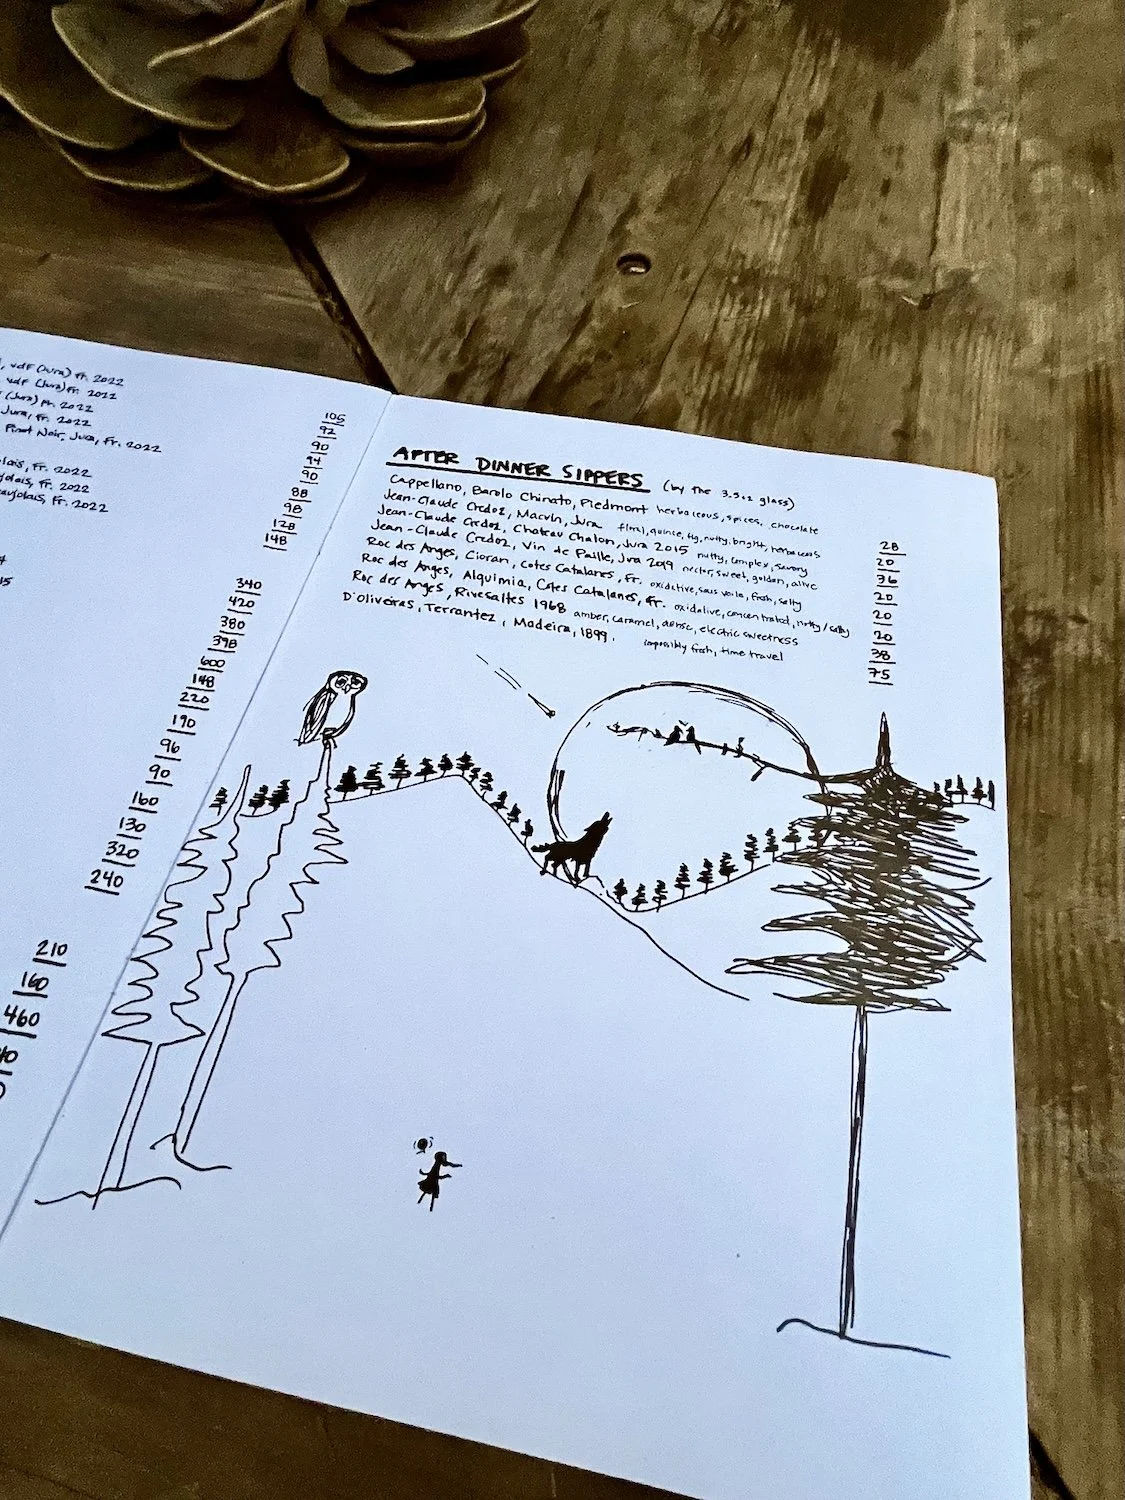 , vdF (Jura) Fr. 2022
vdF (Jura) Fr. 2022
(Jura) Fr. 2022
Jura, Fr. 2022
Pinot Noir, Jura, Fr. 2022
lais, Fr. 2022
jolais, Fr. 2022
eaujolais, Fr. 2022
105
92
90
94
90
88
98
128
148
340
420
380
398
600
148
220
190
96
90
160
130
320
240
210
160
460
AFTER DINNER SIPPERS (by the 3.5oz glass)
Cappellano, Barolo Chinato, Piedmont herbaceous, spices, chocolate 28
Jean-Claude Credoz, Macvin, Jura floral, quince, fig, nutty, bright, herbaceous 20
Jean-Claude Credoz, Chateau Chalon, Jura 2015 nutty, complex, savory 36
Jean-Claude Credoz, Vin de Paille, Jura 2019 nectar, sweet, golden, alive 20
Roc des Anges, Cioran, Cotes Catalanes, Fr. oxidative, sous voile, fresh, salty 20
Roc des Anges, Alquimia, Cotes Catalanes, Fr. oxidative, concentrated, nutty/salty 20
Roc des Anges, Rivesaltes 1968 amber, caramel, dense, electric sweetness 38
D'Oliveiras, Terrantez, Madeira, 1899. impossibly fresh, time travel 75